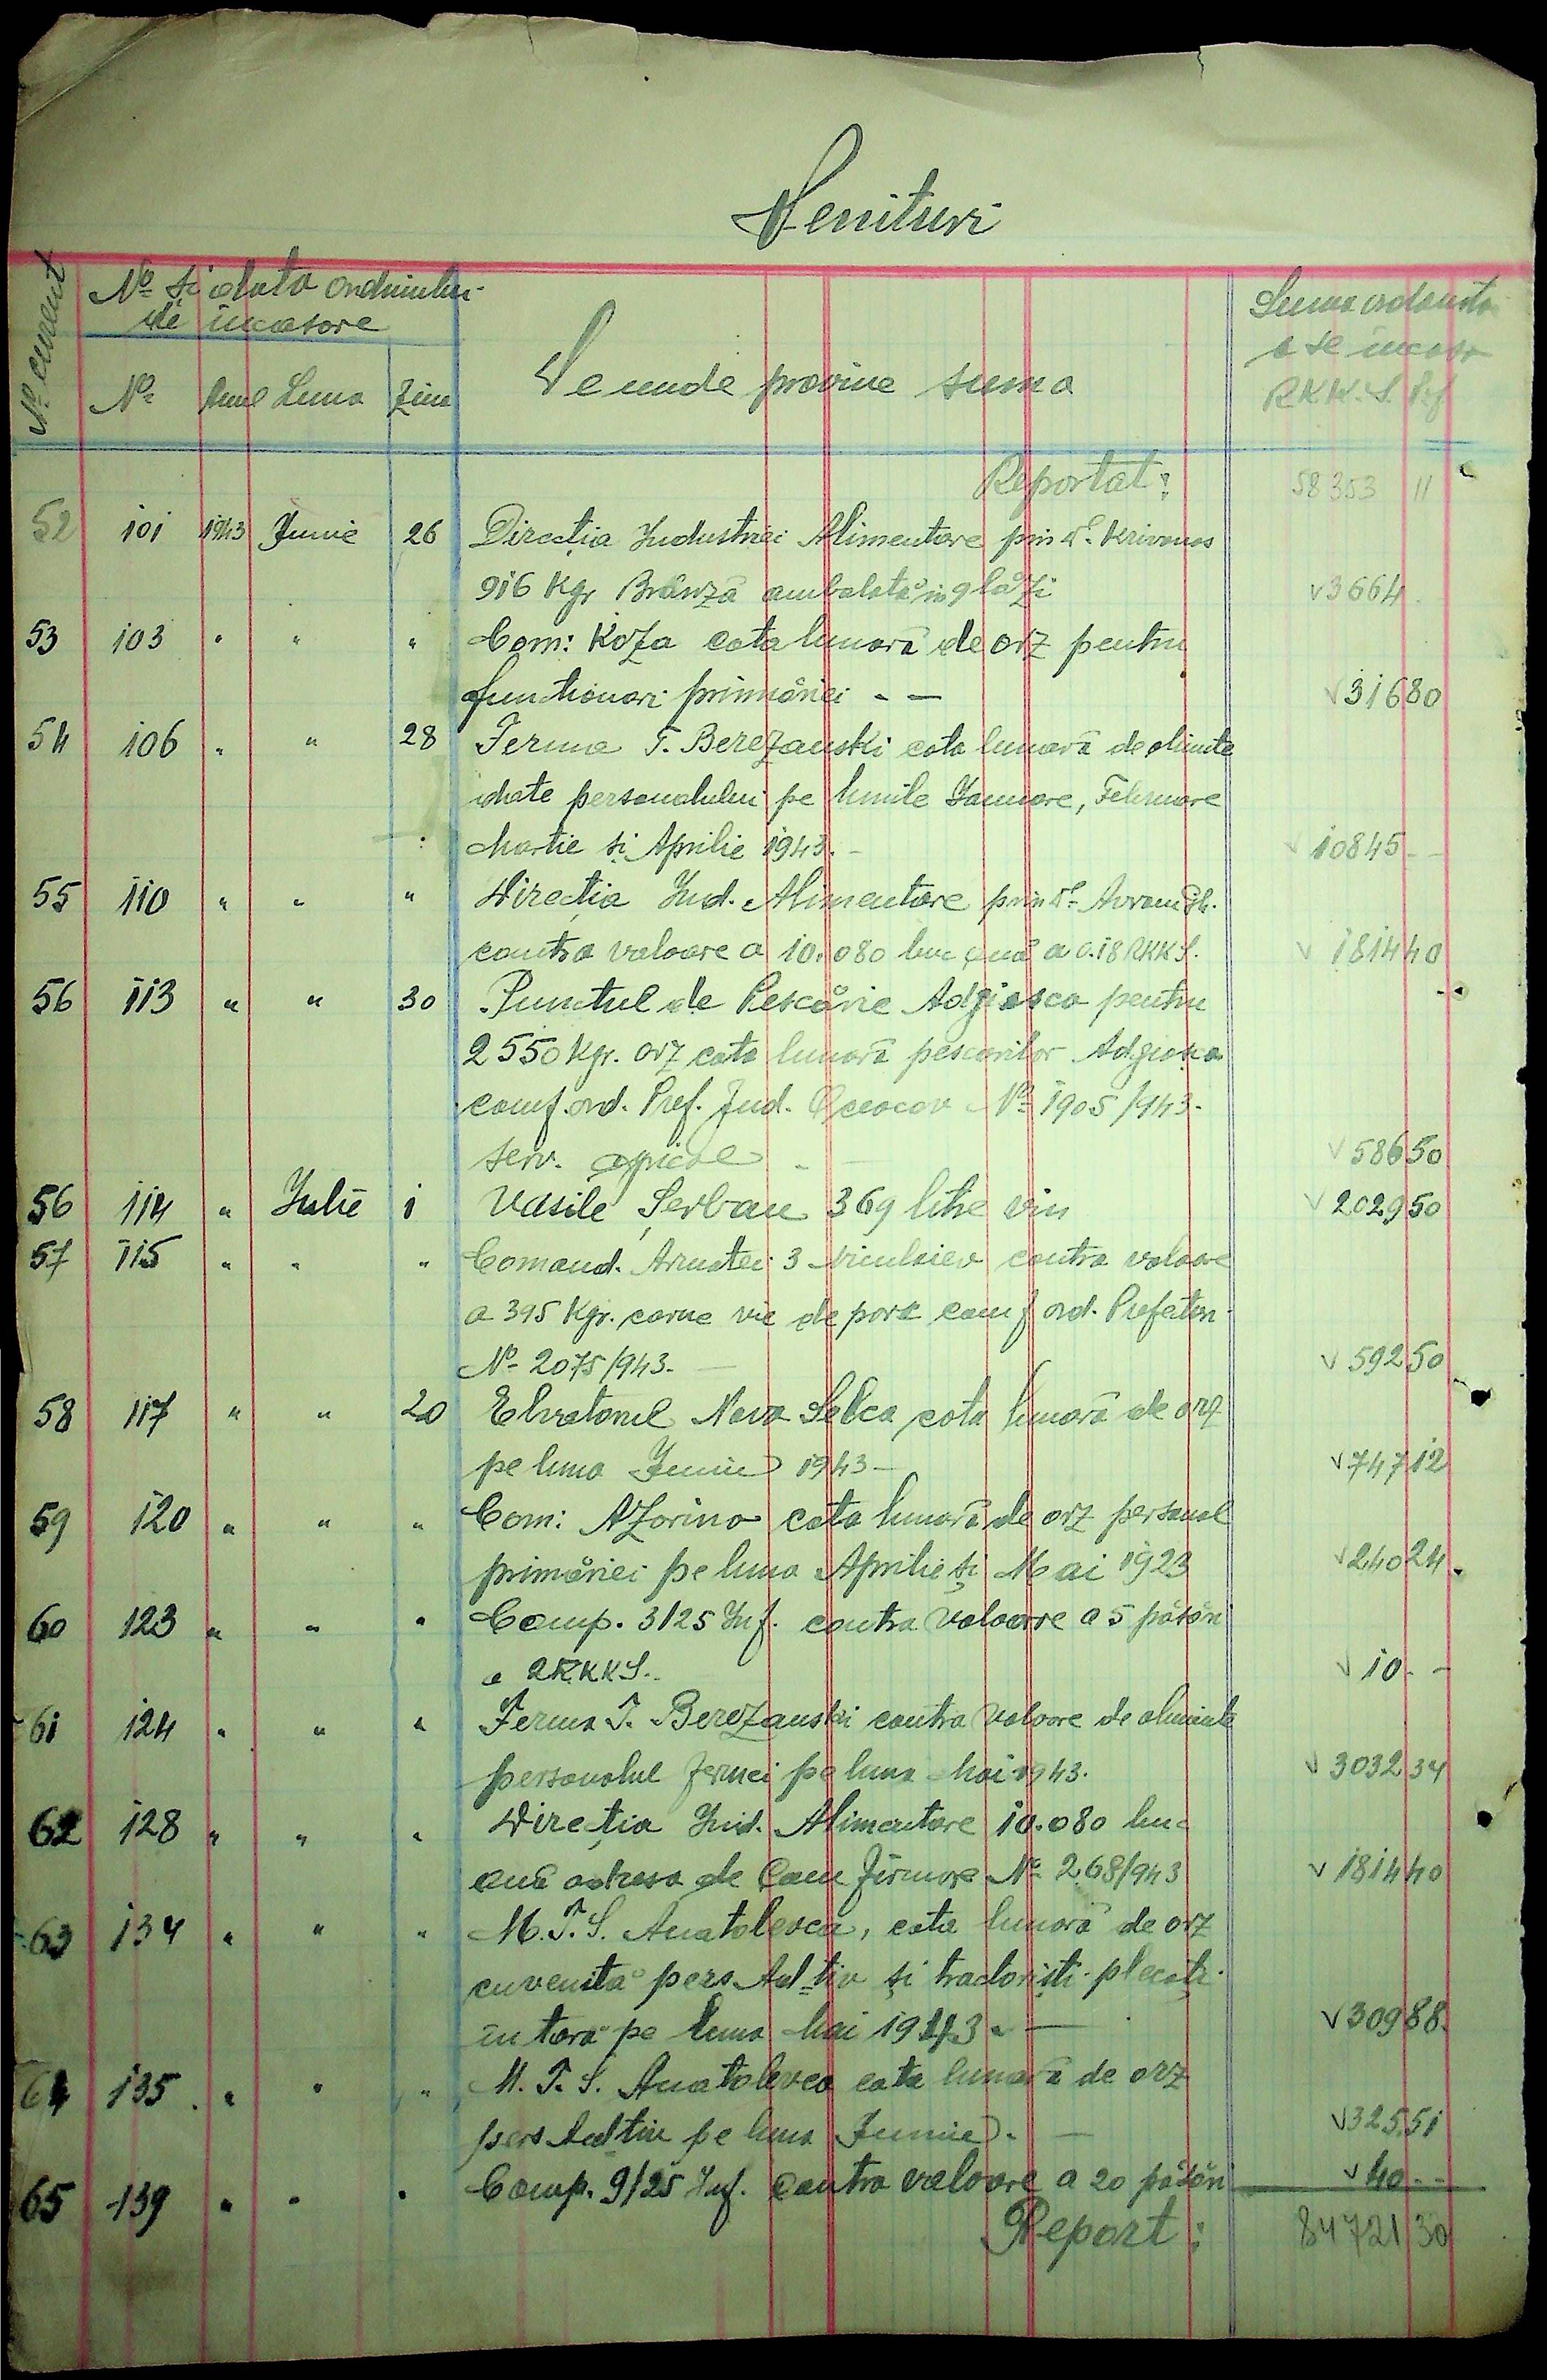 Venituri
No. current
No. și data ordinului
de încasare
No. Anul Luna Ziua
De unde provine suma
Suma ordonată
a se incasa
RKK.S. Pf
Reportat: 58353 11
52 101 1943 Iunie 26 Direcția Industriei Alimentare prin dl. Krivonos
916 Kgr Brânză ambalată în 9 lăzi v3664.
53 103 " " " Com: Koza cota lunară de orz pentru
funcționari primăriei - — v316 80
54 106 " " 28 Ferma T. Berezanski cota lunară de alimente
date personalului pe lunile Ianuare, Februare
Martie și Aprilie 1943. - v10845 - -
55 110 " " " Direcția Ind. Alimentare prin dl. Avram Gh.
contra valoare a 10.080 buc ouă a 0.18 RKKS. v 1814 40
56 113 " " 30 Punctul de Pescărie Adgiasca pentru
2550 Kgr. orz cota lunară pescarilor Adgiasca
conf. ord. Pref. Jud. Oceacov No. 1905/943.
serv. agricol - — v 586 50
56 114 " Iulie 1 Vasile Șerban 369 litre vin v 2029 50
57 115 " " " Comand. Armatei 3 Niculaiev contra valoare
a 395 Kgr. carne vie de porc conf ord. Prefecturi
No. 2075/943. — v 592 50
58 117 " " 20 Elvatorul Nova Selca cota lunară de orz
pe luna Iunie 1943 — v747 12
59 120 " " " Com: Nzorino cota lunară de orz personal
primăriei pe luna Aprilie și Mai 1923 v240 24.
60 123 " " " Comp. 3/25 Inf. contra valoare a 5 păsări
a 2RKKS.. v 10. -
61 124 " " " Ferma T. Berezanski contra valoare de alimente
personalul fermei pe luna Mai 1943. v 3032 34
62 128 " " " Direcția Ind. Alimentare 10.080 buc
ouă adresa de Confirmare No. 268/943 v 1814 40
63 134 " " " M.T.S. Anatolevca, cota lunară de orz
cuvenită pers. Ad-tiv și tractoriști plecați
în țară pe luna Mai 1943. — v309 88.
64 135 . " " " M.T.S. Anatolevca cota lunară de orz
pers Ad-tiv pe luna Iunie. — v325.51
65 139 " " " Comp. 9/25 Inf. Contra valoare a 20 păsări v 40 - -
Report: 84721 30